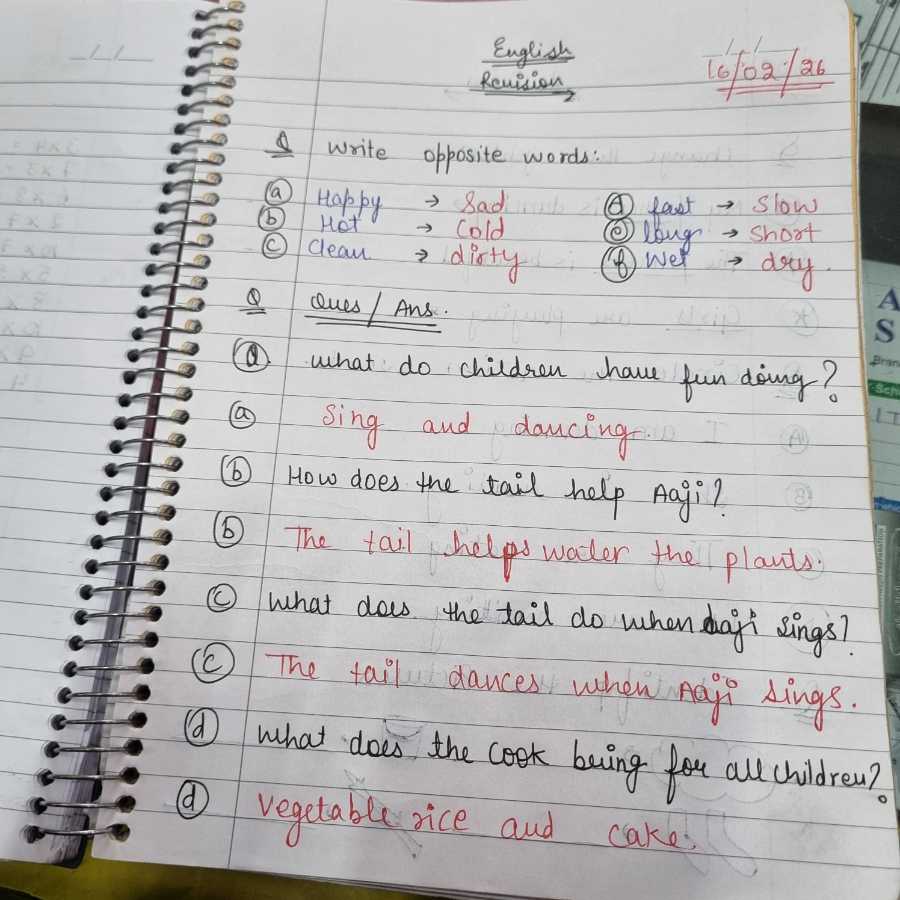 English
Revision
16/02/26
Q Write opposite words:
(a) Happy → Sad (d) fast → Slow
(b) Hot → Cold (e) long → Short
(c) Clean → dirty (f) Wet → dry.
Q Ques / Ans.
(a) what do children have fun doing?
(a) Sing and dancing.
(b) How does the tail help Aaji?
(b) The tail helps water the plants.
(c) what does the tail do when Aaji sings?
(c) The tail dances when Aaji sings.
(d) what does the cook being for all children?
(d) vegetable rice and cake.